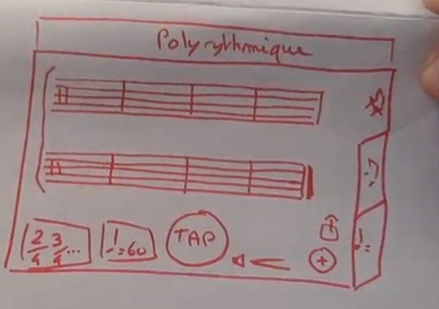 Polyrythmique
2/4 3/4...
♩=60
TAP
♩=